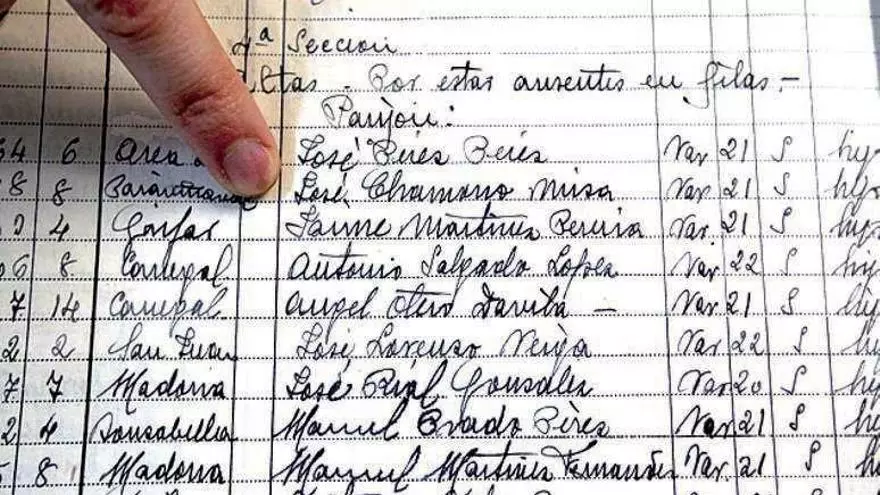 4ª Seccion
ltas - Por estar ausentes en filas.-
Panjon:
64 6 Area José Péres Péres Var 21 S hijo
8 8 José Chamorro Misa Var 21 S hijo
2 4 Gaifar Jaime Martines Pereira Var. 21 S hijo
6 8 Carregal Antonio Salgado Lopes Var. 22 S hi
7 14 Carregal Angel Otero Davila — Var 21 S hi
2 2 San Juan José Lorenzo Veiga Var 22 S hi
7 7 Madorra José Rial Gonsales Var 20 S hij
2 4 Sousabella Manuel Prado Péres Var 21 S hi
8 Madorra Manuel Martines Fernandes Var. 21 S hi